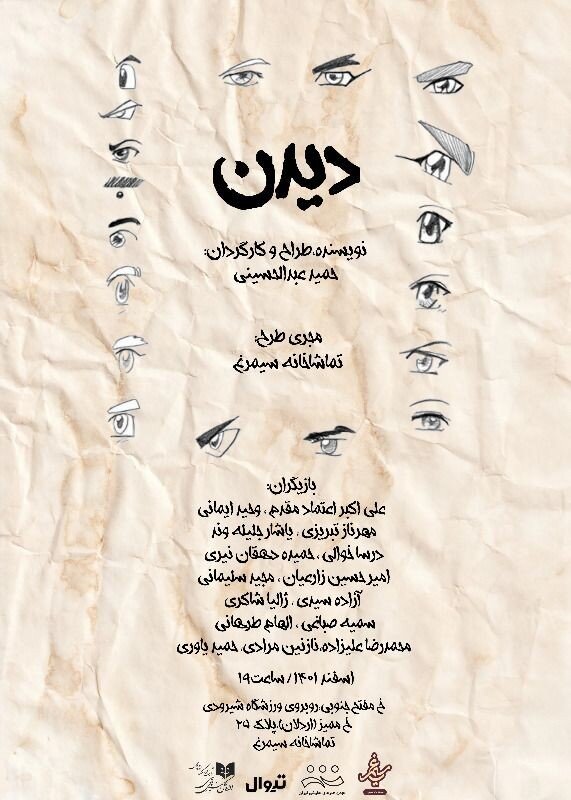 دیدن
نویسنده، طراح و کارگردان:
حمید عبدالحسینی
مجری طرح:
تماشاخانه سیمرغ
بازیگران:
علی اکبر اعتماد مقدم . وحید ایمانی
مهرناز تبریزی . یاشار جلیله وند
درسا خوالی . حمیده دهقان نیری
امیر حسین زارعیان . مجید سلیمانی
آزاده سیدی . ژالیا شاکری
سمیه صباغی . الهام طرهانی
محمدرضا علیزاده، نازنین مرادی، حمید یاوری
اسفند ۱۴۰۱ / ساعت ۱۹
خ مفتح جنوبی، روبروی ورزشگاه شیرودی
خ ممیز (اردلان)، پلاک ۲۵
تماشاخانه سیمرغ
تیوال